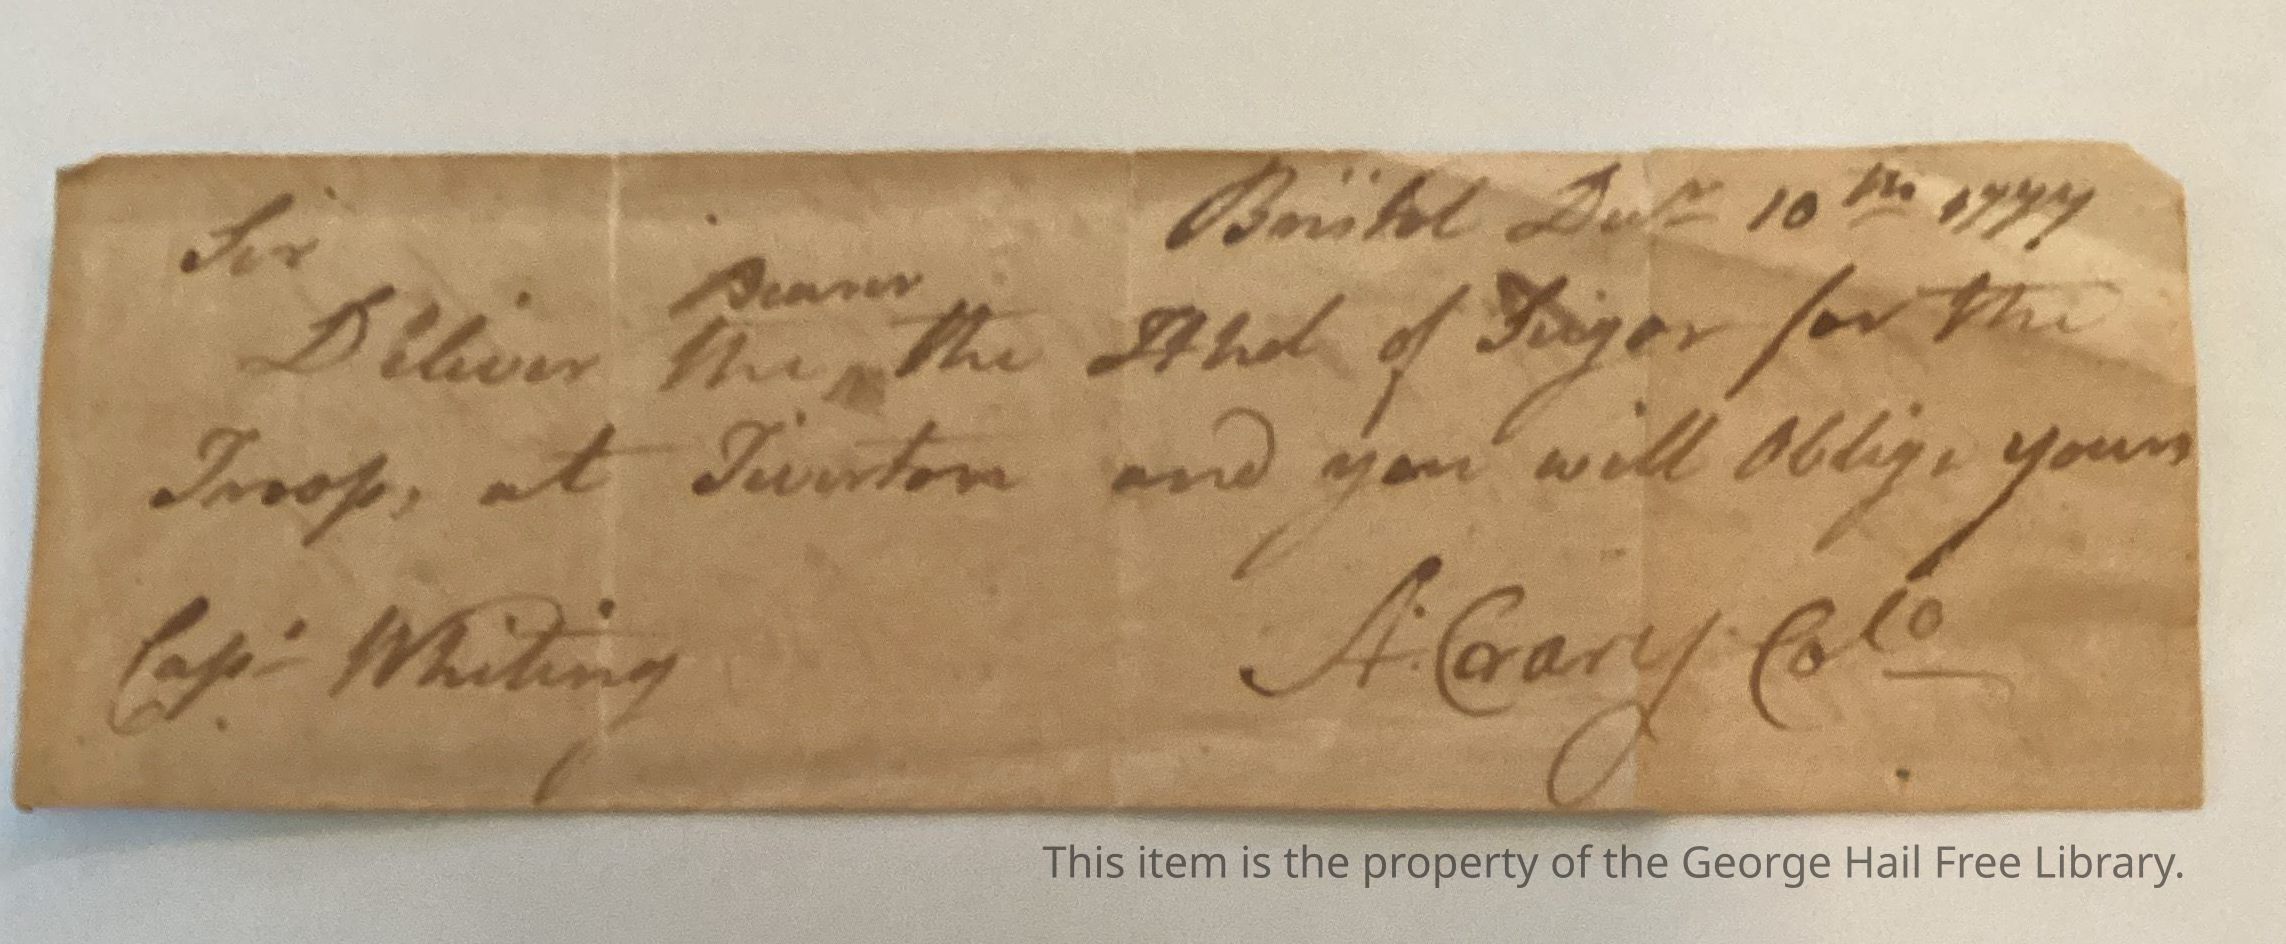 Sir
Bristol Decr 10th 1777
Bearer
Deliver the ^ the Hhd of Suger for the
Troops at Tiverton and you will oblige yours
Capt Whiting
A. Crary Colo
This item is the property of the George Hail Free Library.